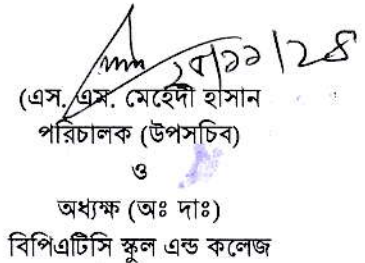 ২৭/১১/২৪
(এস. এম. মেহেদী হাসান
পরিচালক (উপসচিব)
ও
অধ্যক্ষ (অঃ দাঃ)
বিপিএটিসি স্কুল এন্ড কলেজ